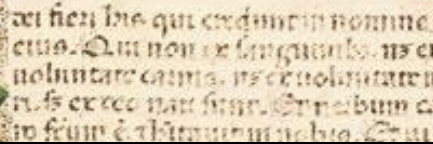 dei fieri his qui credunt in nomine
eius. Qui non ex sanguinib. nec
uoluntate carnis. nec ex uoluntate
s. ex deo nati sunt. Et uerbum ca
ro factum e. & habitauit in nobis. Et